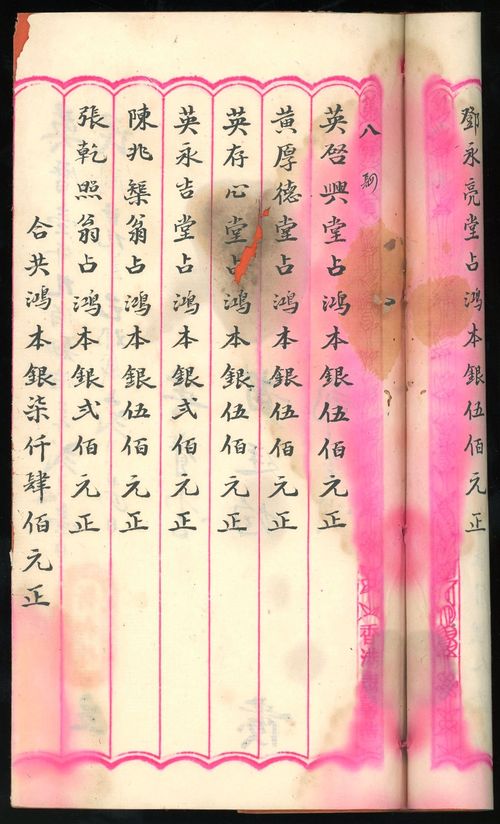 鄧永亮堂占鴻本銀伍佰元正
八
香港
英啓興堂占鴻本銀伍佰元正
黄厚德堂占鴻本銀伍佰元正
英存心堂占鴻本銀伍佰元正
英永吉堂占鴻本銀弍佰元正
陳兆榘翁占鴻本銀伍佰元正
張乾照翁占鴻本銀弍佰元正
合共鴻本銀柒仟肆佰元正